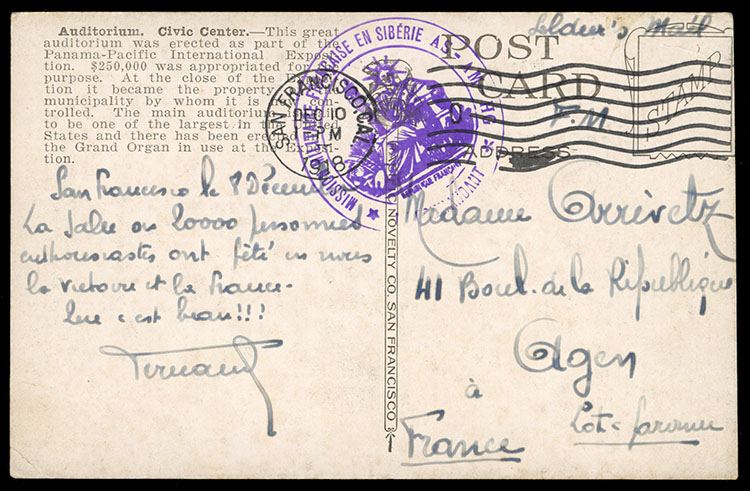 Auditorium. Civic Center.—This great
auditorium was erected as part of the
Panama-Pacific International Exposi-
tion. $250,000 was appropriated for
purpose. At the close of the E
tion it became the property
municipality by whom it is con-
trolled. The main auditorium is
to be one of the largest in the
States and there has been erec
the Grand Organ in use at the Exposi-
tion.
San Francisco le 8 Décem
La Salle où 20000 personnes
enthousiastes ont fêté en nous
la victoire et la France
que c'est beau!!!
Fernand
SAN FRANCISCO, CAL.
DEC 10
1 PM
1918
MISSION MILITAIRE FRANÇAISE EN SIBÉRIE
RÉPUBLIQUE FRANÇAISE
NOVELTY CO. SAN FRANCISCO
Soldier's Mail
POST
CARD
F.M.
STAMP
ADDRESS
Madame Arrivetz
41 Boul. de la République
Agen
à Lot & Garonne
France